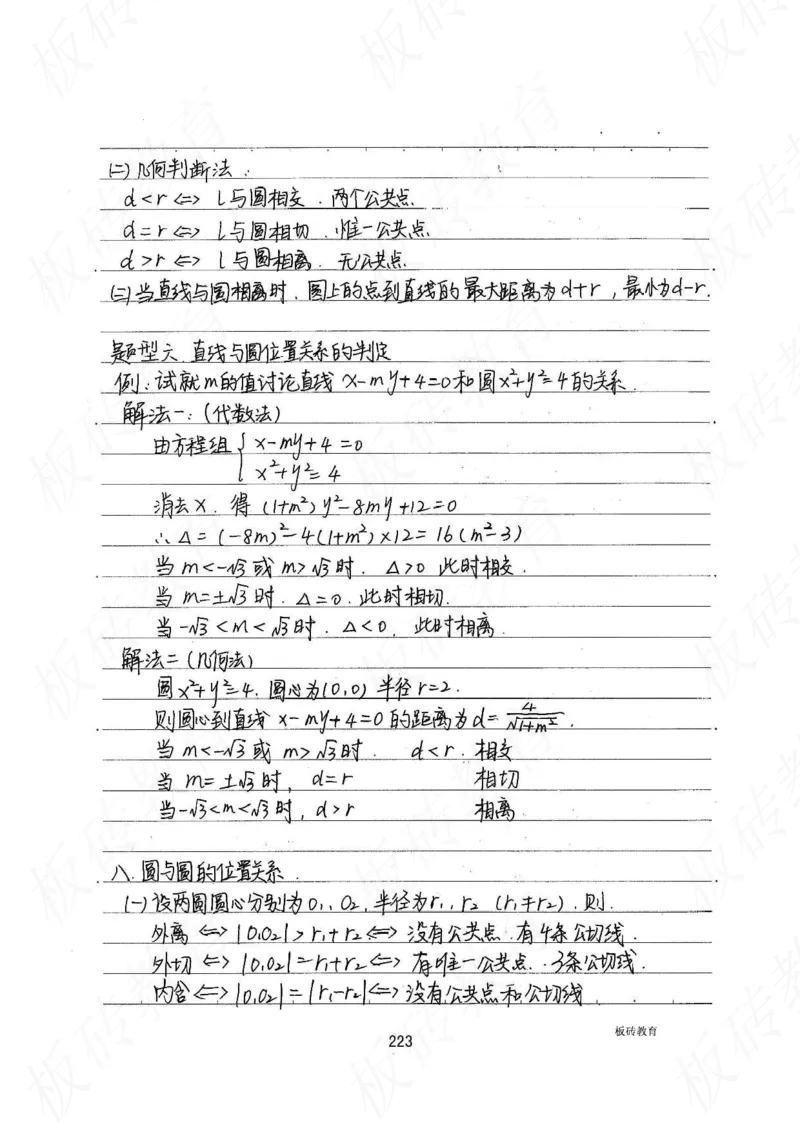 (二)几何判断法:
d<r ⇔ l与圆相交.两个公共点.
d=r ⇔ l与圆相切.惟一公共点.
d>r ⇔ l与圆相离.无公共点.
(三)当直线与圆相离时.圆上的点到直线的最大距离为d+r,最小为d-r.
题型六 直线与圆位置关系的判定
例:试就m的值讨论直线 x-my+4=0和圆x²+y²=4的关系.
解法一:(代数法)
由方程组{x-my+4=0
x²+y²=4
消去x.得 (1+m²)y²-8my+12=0
∴△=(-8m)²-4(1+m²)×12=16(m²-3)
当 m<-√3或 m>√3时.△>0 此时相交.
当 m=±√3时.△=0.此时相切.
当-√3<m<√3时.△<0.此时相离.
解法二(几何法)
圆x²+y²=4.圆心为(0,0) 半径r=2.
则圆心到直线 x-my+4=0的距离为d=4/√1+m².
当 m<-√3或 m>√3时. d<r.相交
当 m=±√3时, d=r 相切
当-√3<m<√3时,d>r 相离.
八.圆与圆的位置关系.
(一)设两圆圆心分别为O₁,O₂,半径为r₁,r₂ (r₁≠r₂).则.
外离 ⇔ |O₁O₂|>r₁+r₂ ⇔ 没有公共点.有4条公切线.
外切 ⇔ |O₁O₂|=r₁+r₂ ⇔ 有唯一公共点.3条公切线.
内含 ⇔ |O₁O₂|=|r₁-r₂| ⇔ 没有公共点和公切线.
板砖教育
223